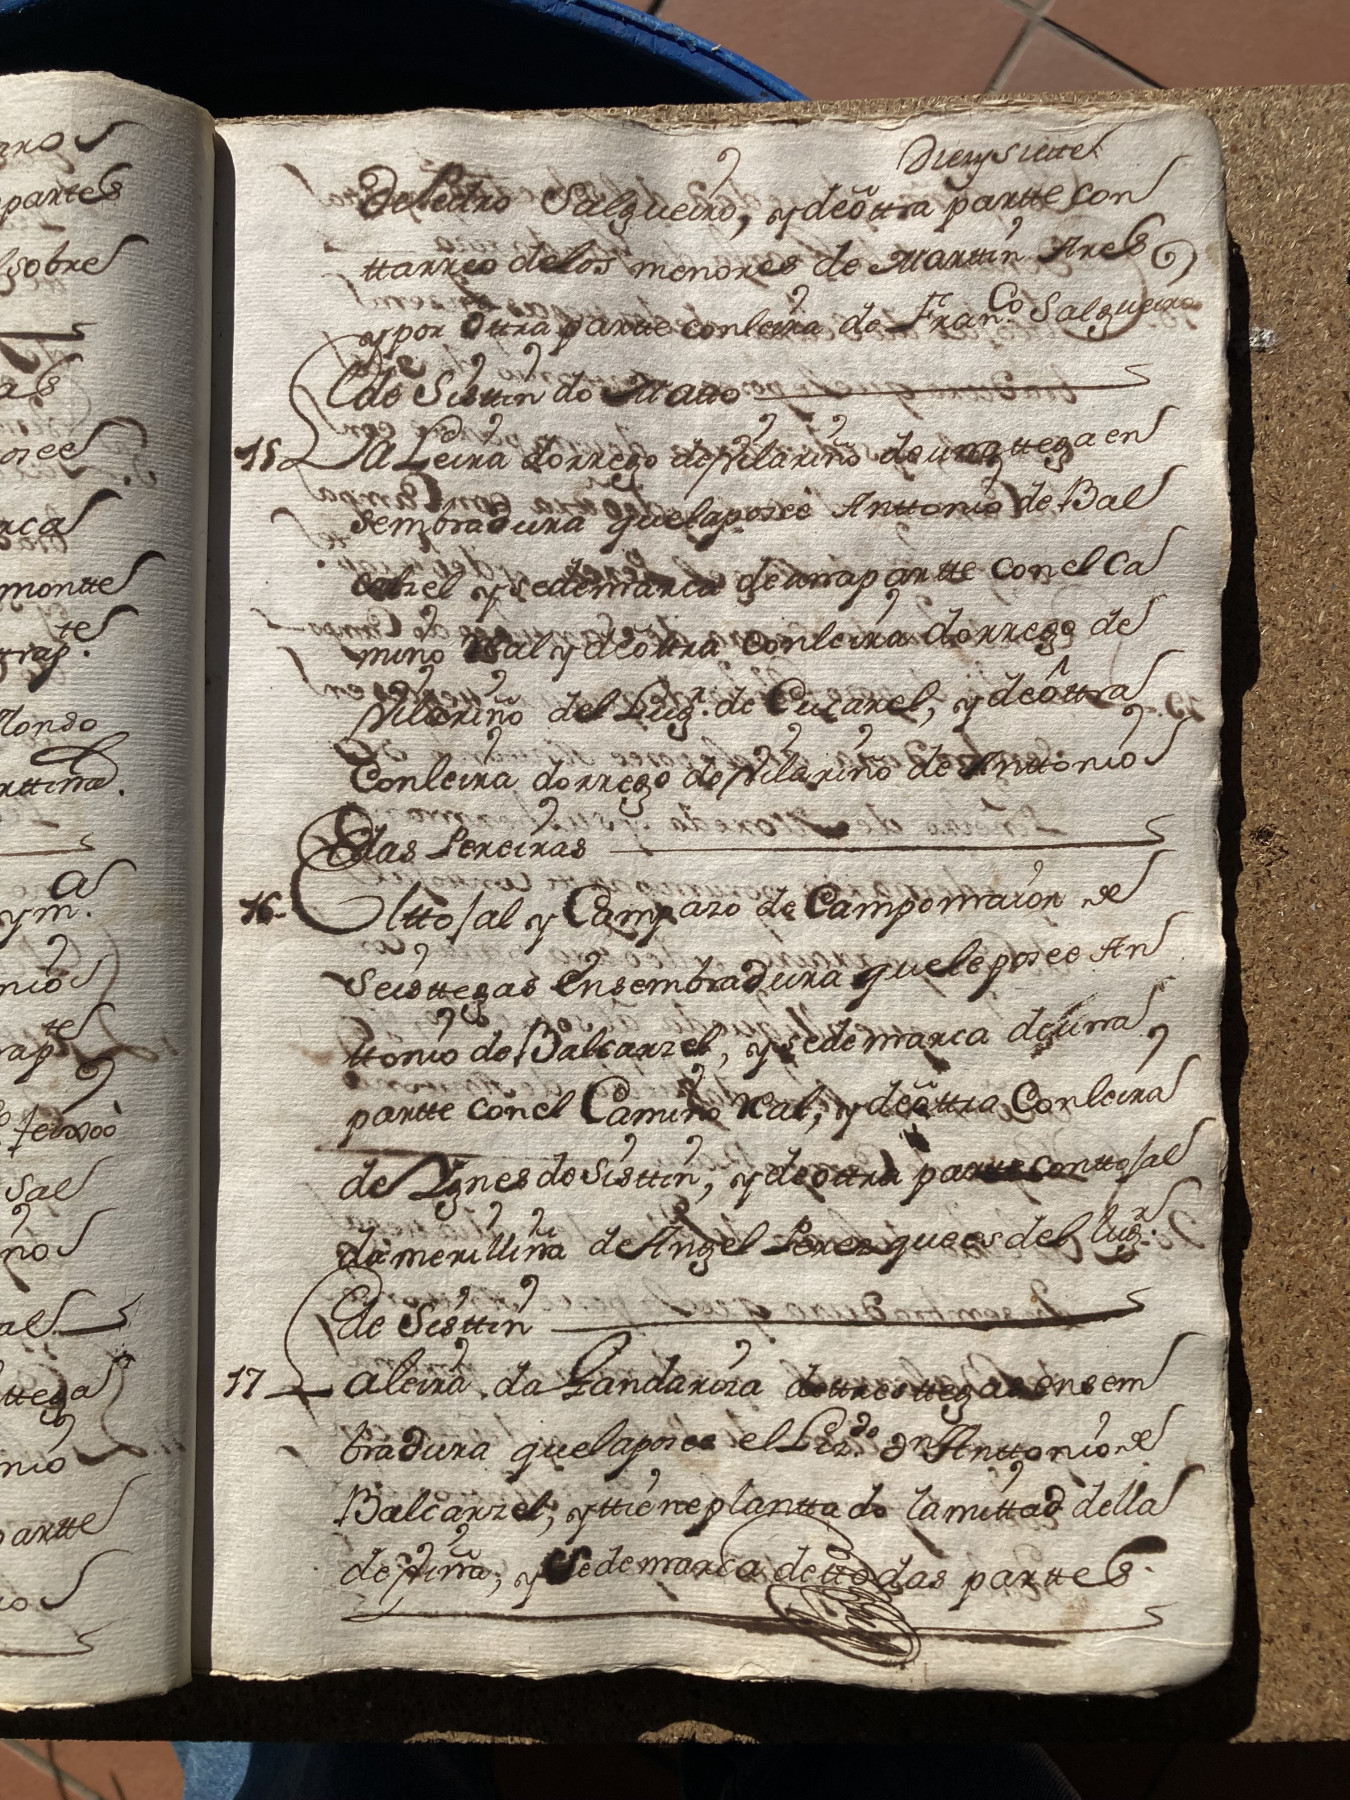 Diezysiette
de Pedro Salgueiro, y deõttra partte con
ttarreo delos menores de Marttin Ares
y por ottra partte conleira de Franco. Salgueiro
de Sisttin do Matto
15 La Leira dorrego de Vilariño de una ttega en
sembradura quelaposee Anttonio de Bal
carzel y sedemarca de una partte con el Ca
mino Real y deõttra conleira dorrego de
Vilariño del Lugr. de Cucarel, y deôttra
Conleira dorrego de Vilariño de Anttonio
das Pereiras
16 El ttosal y Campazo de Campomaior de
Seis ttegas Ensembradura que le posee An
ttonio de Balcarzel, y sedemarca de una
partte con el Camino Real, y deõttra Conleira
de Ygnes do Sisttin, y de ottra partte conttosal
da de Angel Perez que es del lugr.
de Sisttin
17 La leira da Gandaroza dettres ttegas ensem
bradura que laposee el Lizdo. dn Anttonio de
Balcarzel, y ttiene planttado la mittad della
de Viña, y Sedemarca de ttodas parttes
aro
partes
sobre
as
osee
rca
montte
rapte.
londo
rttina.
a
ym.
nio
rapte
Sal
ño
al
ttega
nio
partte
io